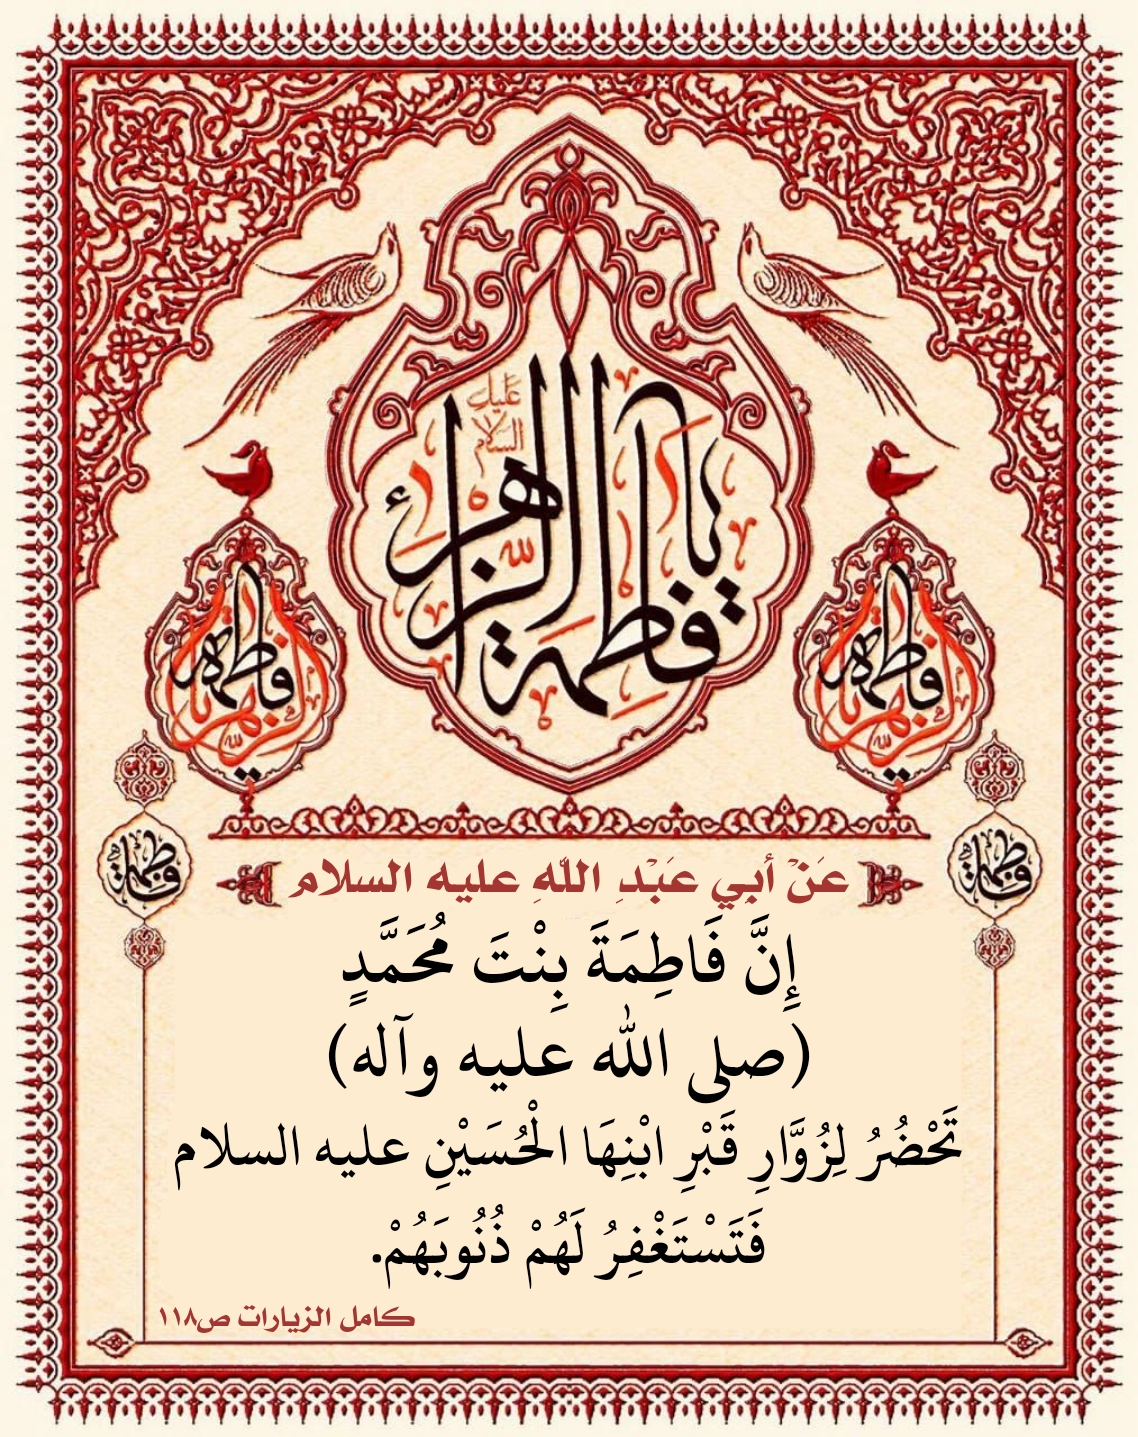 يا فاطمة الزهراء
عليك السلام
فاطمة
فاطمة
فاطمة
فاطمة
عَنْ أبي عَبْدِ اللَّهِ عليه السلام
إِنَّ فَاطِمَةَ بِنْتَ مُحَمَّدٍ
(صلى الله عليه وآله)
تَحْضُرُ لِزُوَّارِ قَبْرِ ابْنِهَا الْحُسَيْنِ عليه السلام
فَتَسْتَغْفِرُ لَهُمْ ذُنُوبَهُمْ.
كامل الزيارات ص١١٨